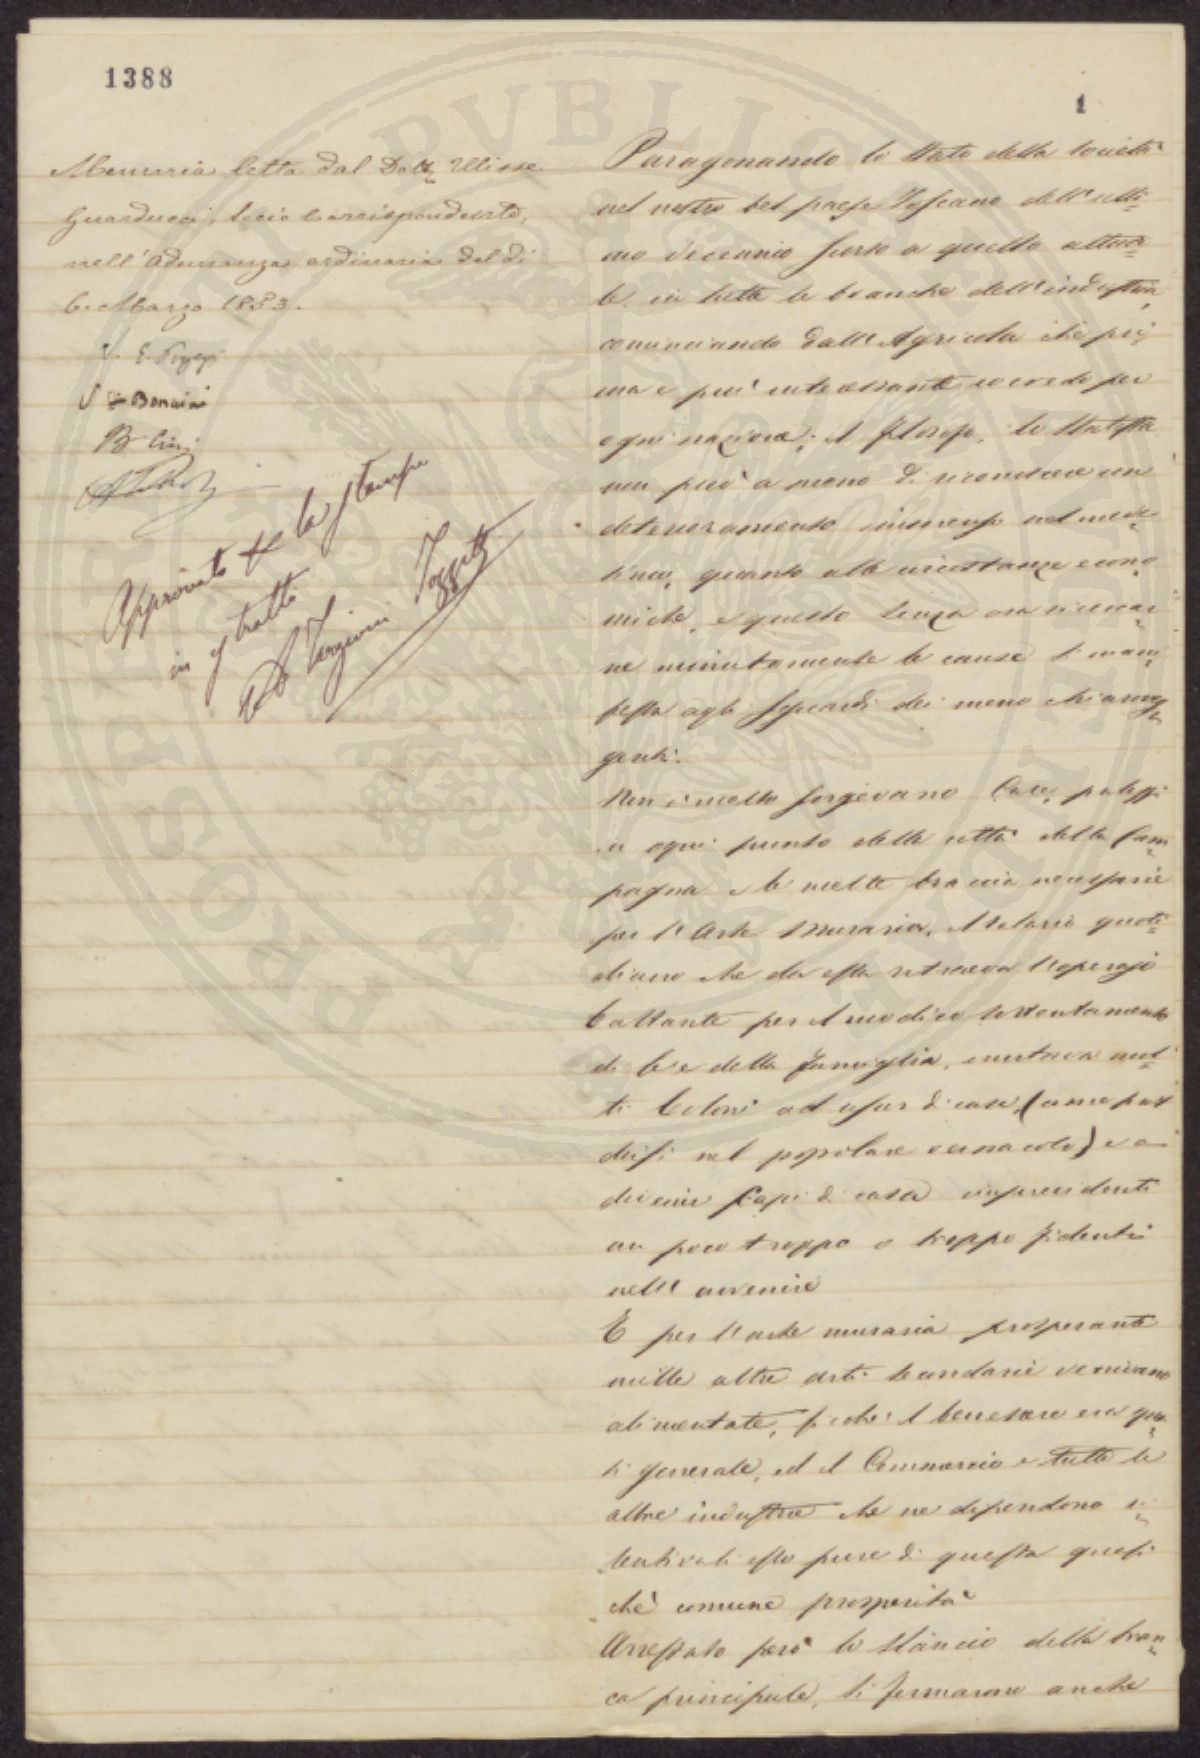 1388
1
Memoria letta dal Dott. Ulisse
Guarducci, Socio Corrispondente,
nell'Adunanza ordinaria del dì
6. Marzo 1853.
V. E. Poggi
V Bonaini
Approvato per la stampa
in estratto
Targioni Tozzetti
Paragonando lo Stato della Società
nel nostro bel paese Toscano dell'ulti=
mo decennio scorso a quello attua=
le in tutte le branche dell'industria,
cominciando dall'Agricola che pri=
ma e più interessante io credo per
ogni nazione; il filosofo, lo Statista
non può a meno di riconoscere un
deterioramento immenso nel mede=
simo, quanto alle circostanze econo
miche, e questo senza ora ricercar=
ne minutamente le cause si mani=
festa agli sguardi dei meno chiaroveg=
genti.
Non è molto sorgevano Case, palazzi
in ogni punto della città della Cam=
pagna e le molte braccia necessarie
per l'Arte Muraria, il salario quoti=
diano che da essa ritraeva l'operajo
bastante per il modico sostentamento
di se e della famiglia, invitava mol=
ti Coloni ad escir di casa (come può
dirsi nel popolare vernacolo) e a
divenir Capi di casa imprevidenti
un poco troppo o troppo fidenti
nell'avvenire
E per l'arte muraria prosperante
mille altre arti secondarie venivano
alimentate, sicchè il benessere era qua=
si generale, ed il Commercio e tutte le
altre industrie che ne dipendono ri=
sentivasi esso pure di questa quasi
chè comune prosperità
Arrestato però lo slancio della bran=
ca principale, si fermarono anche